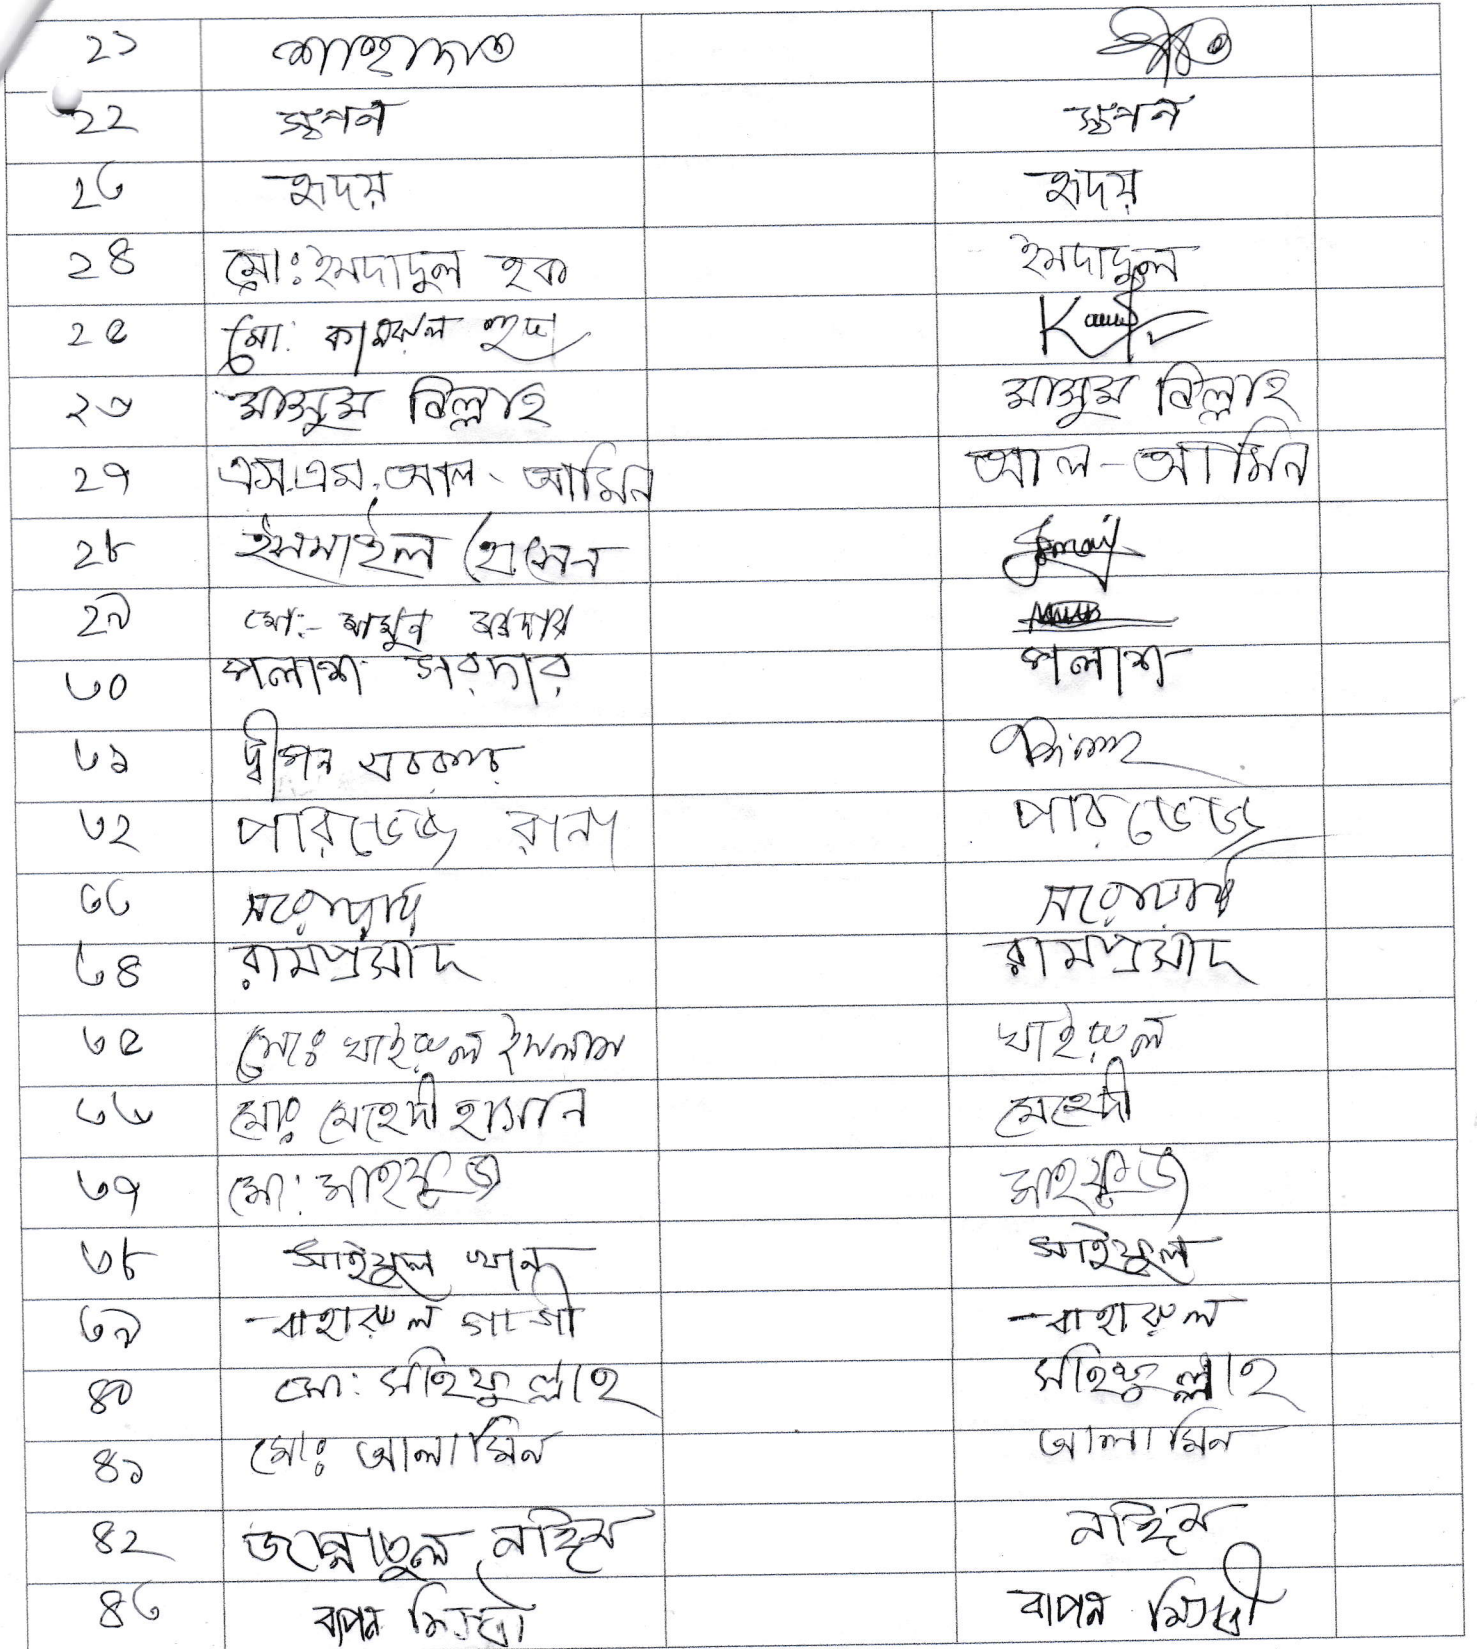 ২১ শাহাদাত
২২ স্বপন স্বপন
২৩ হৃদয় হৃদয়
২৪ মো: ইমদাদুল হক ইমদাদুল
২৫ মো: কামরুল হুদা
২৬ মাসুম বিল্লাহ মাসুম বিল্লাহ
২৭ এস.এম. আল-আমিন আল-আমিন
২৮ ইসমাইল হোসেন Ismail
২৯ মো:- মামুন সরদার
৩০ পলাশ সরদার পলাশ
৩১ দ্বীপন সরকার
৩২ পারভেজ রানা পারভেজ
৩৩
৩৪ রামপ্রসাদ রামপ্রসাদ
৩৫ মোঃ খাইরুল ইসলাম খাইরুল
৩৬ মোঃ মেহেদী হাসান মেহেদী
৩৭ মো: মাহফুজ মাহফুজ
৩৮ সাইফুল খান সাইফুল
৩৯ বাহারুল গাজী বাহারুল
৪০ মো: সহিফুল্লাহ সহিফুল্লাহ
৪১ মোঃ আলামিন আলামিন
৪২ জান্নাতুল নাঈম নাঈম
৪৩ বাপন মিস্ত্রী বাপন মিস্ত্রী